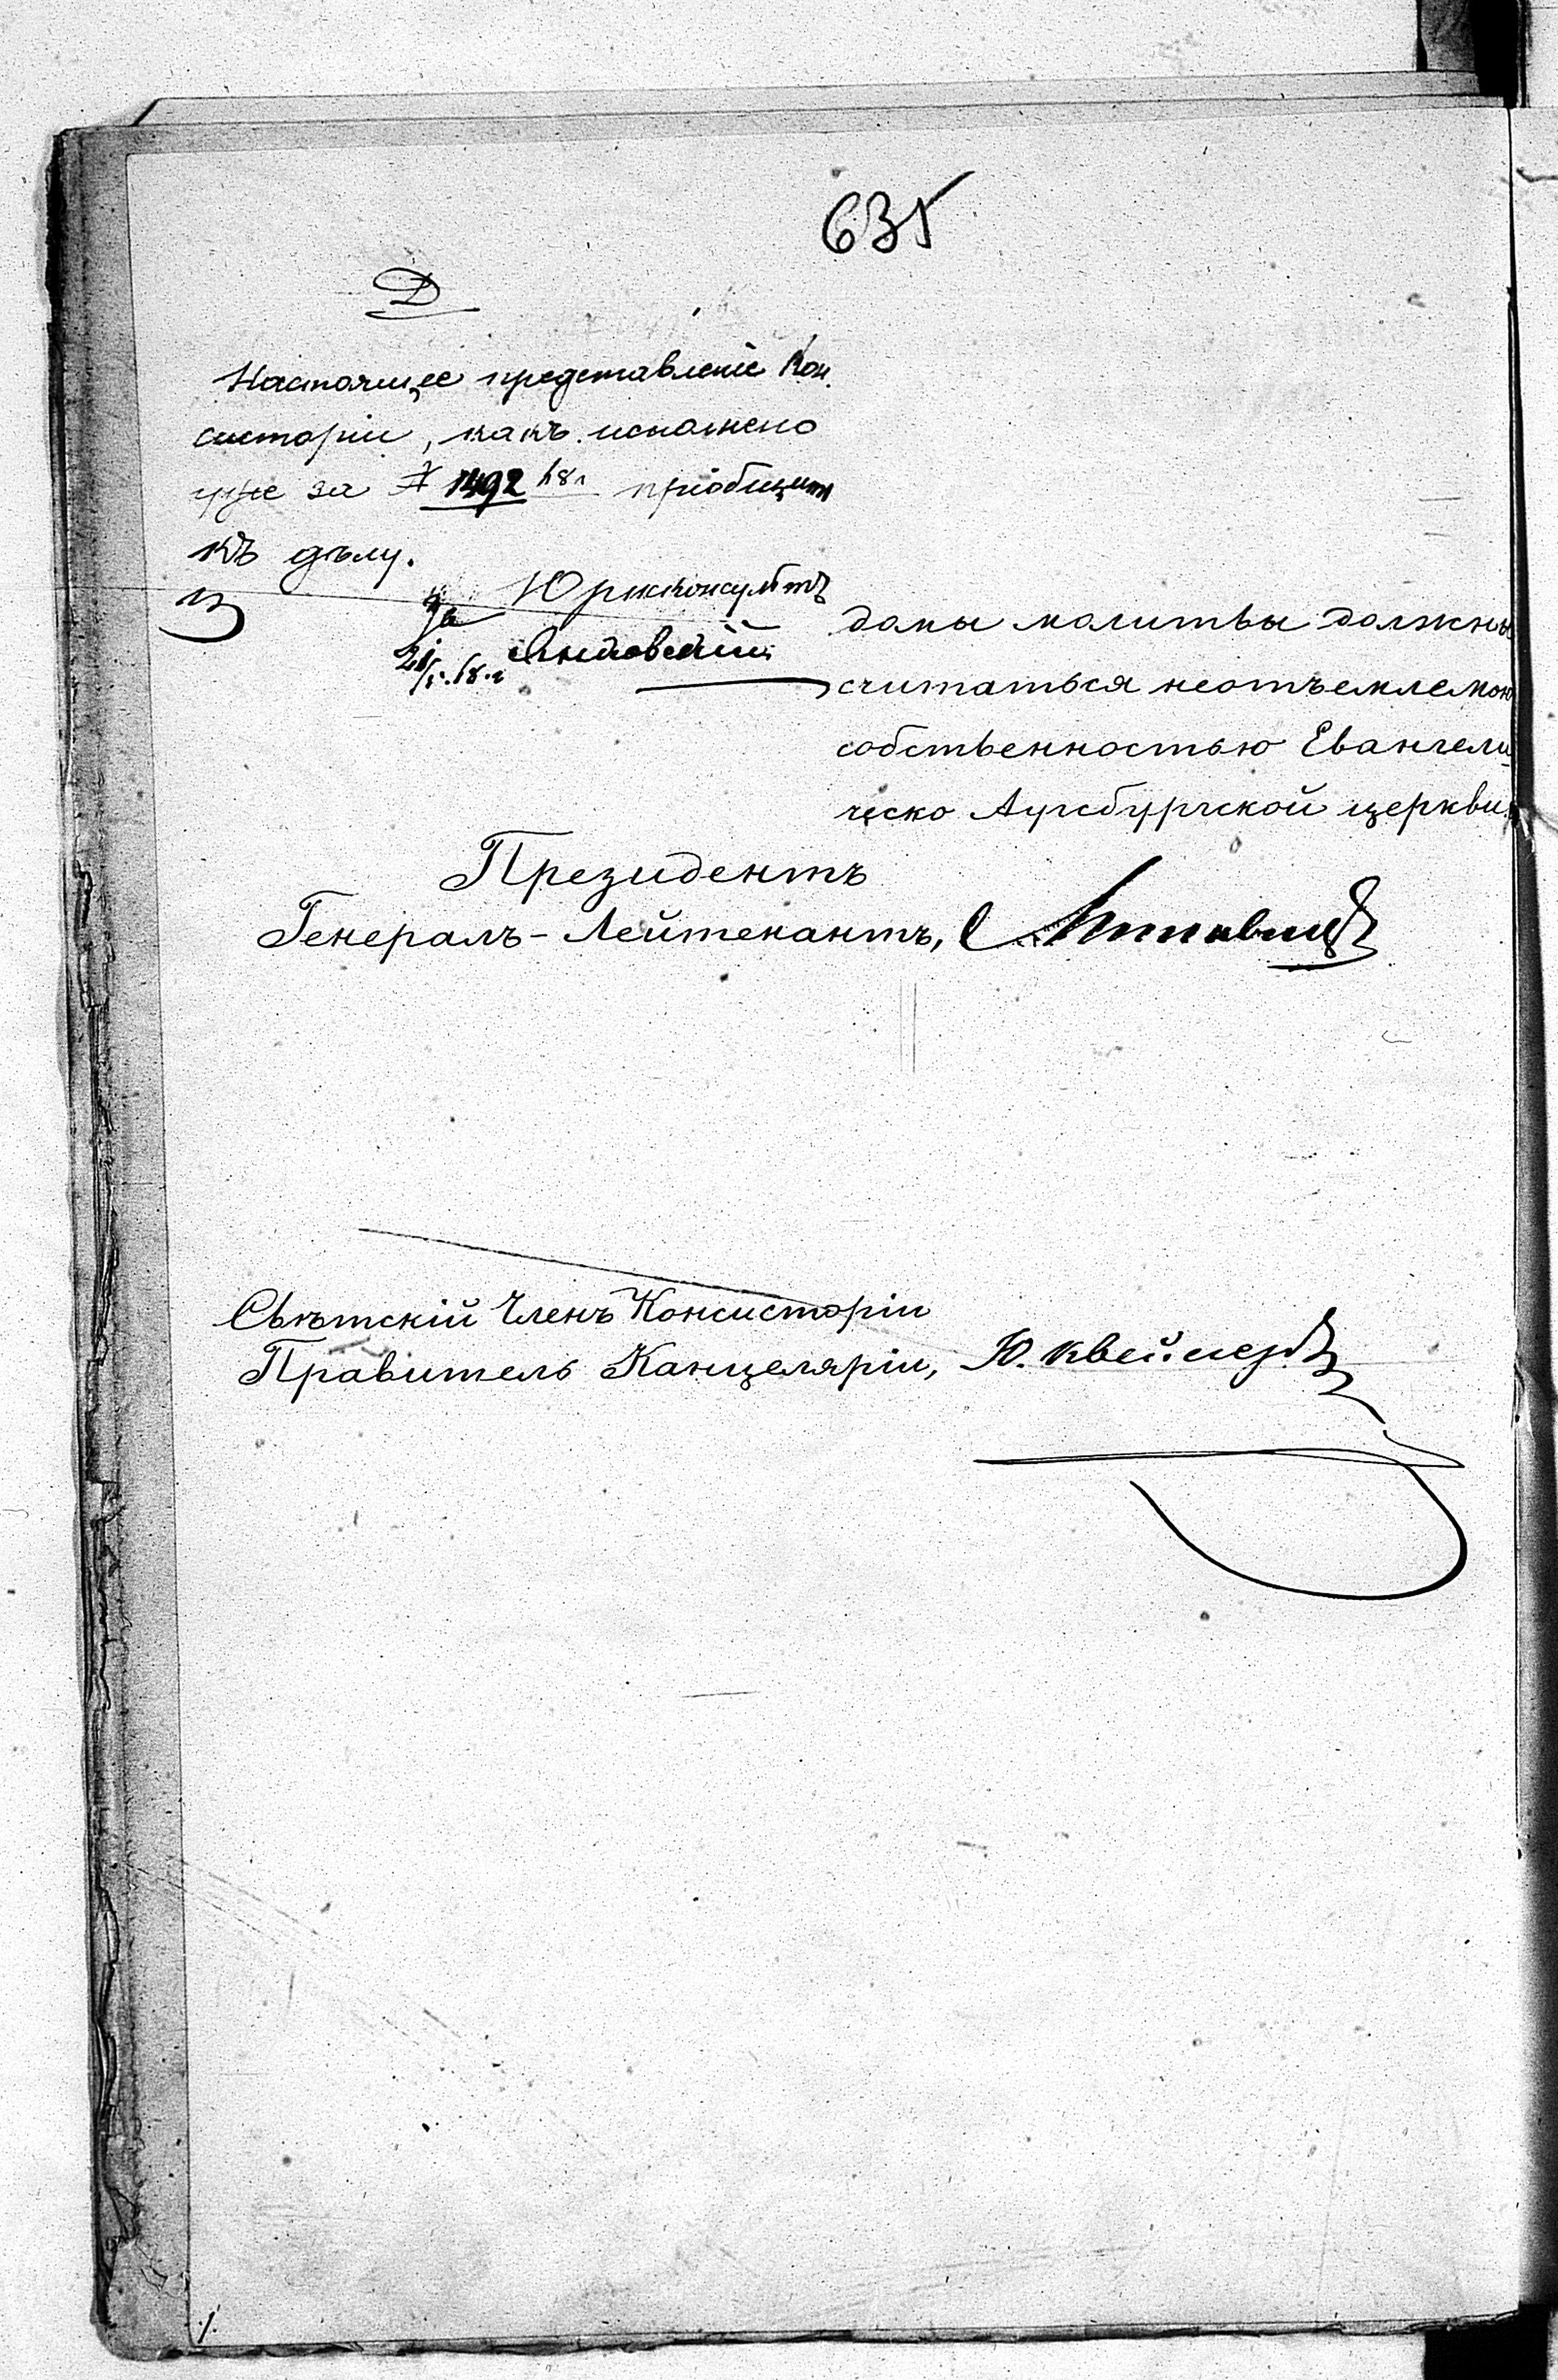 635
Д
Настоящее представленіе Кон-
систоріи, какъ исполнено
уже за № 1492 пріобщить
къ дѣлу.
Юрисконсультъ
домы молитвы должны
считаться неотъемлемою
собственностью Евангели-
ческо Аугсбургской церкви.
Президентъ
Генералъ-Лейтенантъ,
Свѣтскій Членъ Консисторіи
Правитель Канцеляріи, Ю.